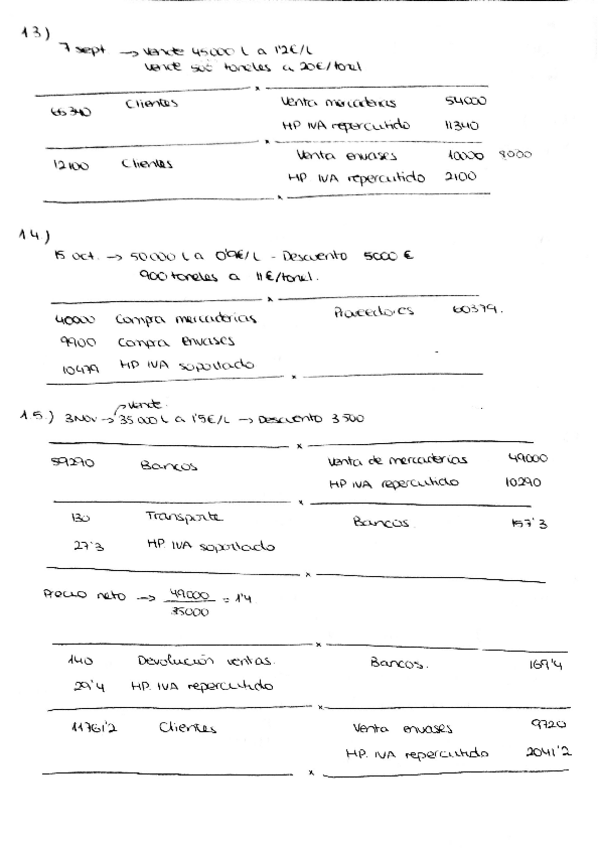 13)
7 sept → vende 45000 L a 1'2€/L
vende 500 toneles a 20€/tonel
x
66340 Clientes Venta mercaderias 54000
HP IVA repercutido 11340
x
12100 Clientes Venta envases 10000 8000
HP IVA repercutido 2100
x
14)
15 oct. → 50000 L a 0'9€/L - Descuento 5000 €
900 toneles a 11€/tonel.
x
40000 Compra mercaderias Proveedores 60379.
9900 Compra envases
10479 HP IVA soportado
x
15.) 3 Nov → vende 35000 L a 1'5€/L → Descuento 3500
x
59290 Bancos Venta de mercaderias 49000
HP IVA repercutido 10290
x
130 Transporte Bancos 157'3
27'3 HP. IVA soportado
x
Precio neto → 49000 / 35000 = 1'4
x
140 Devolución ventas. Bancos. 169'4
29'4 HP. IVA repercutido
x
11761'2 Clientes Venta envases 9720
HP. IVA repercutido 2041'2
x